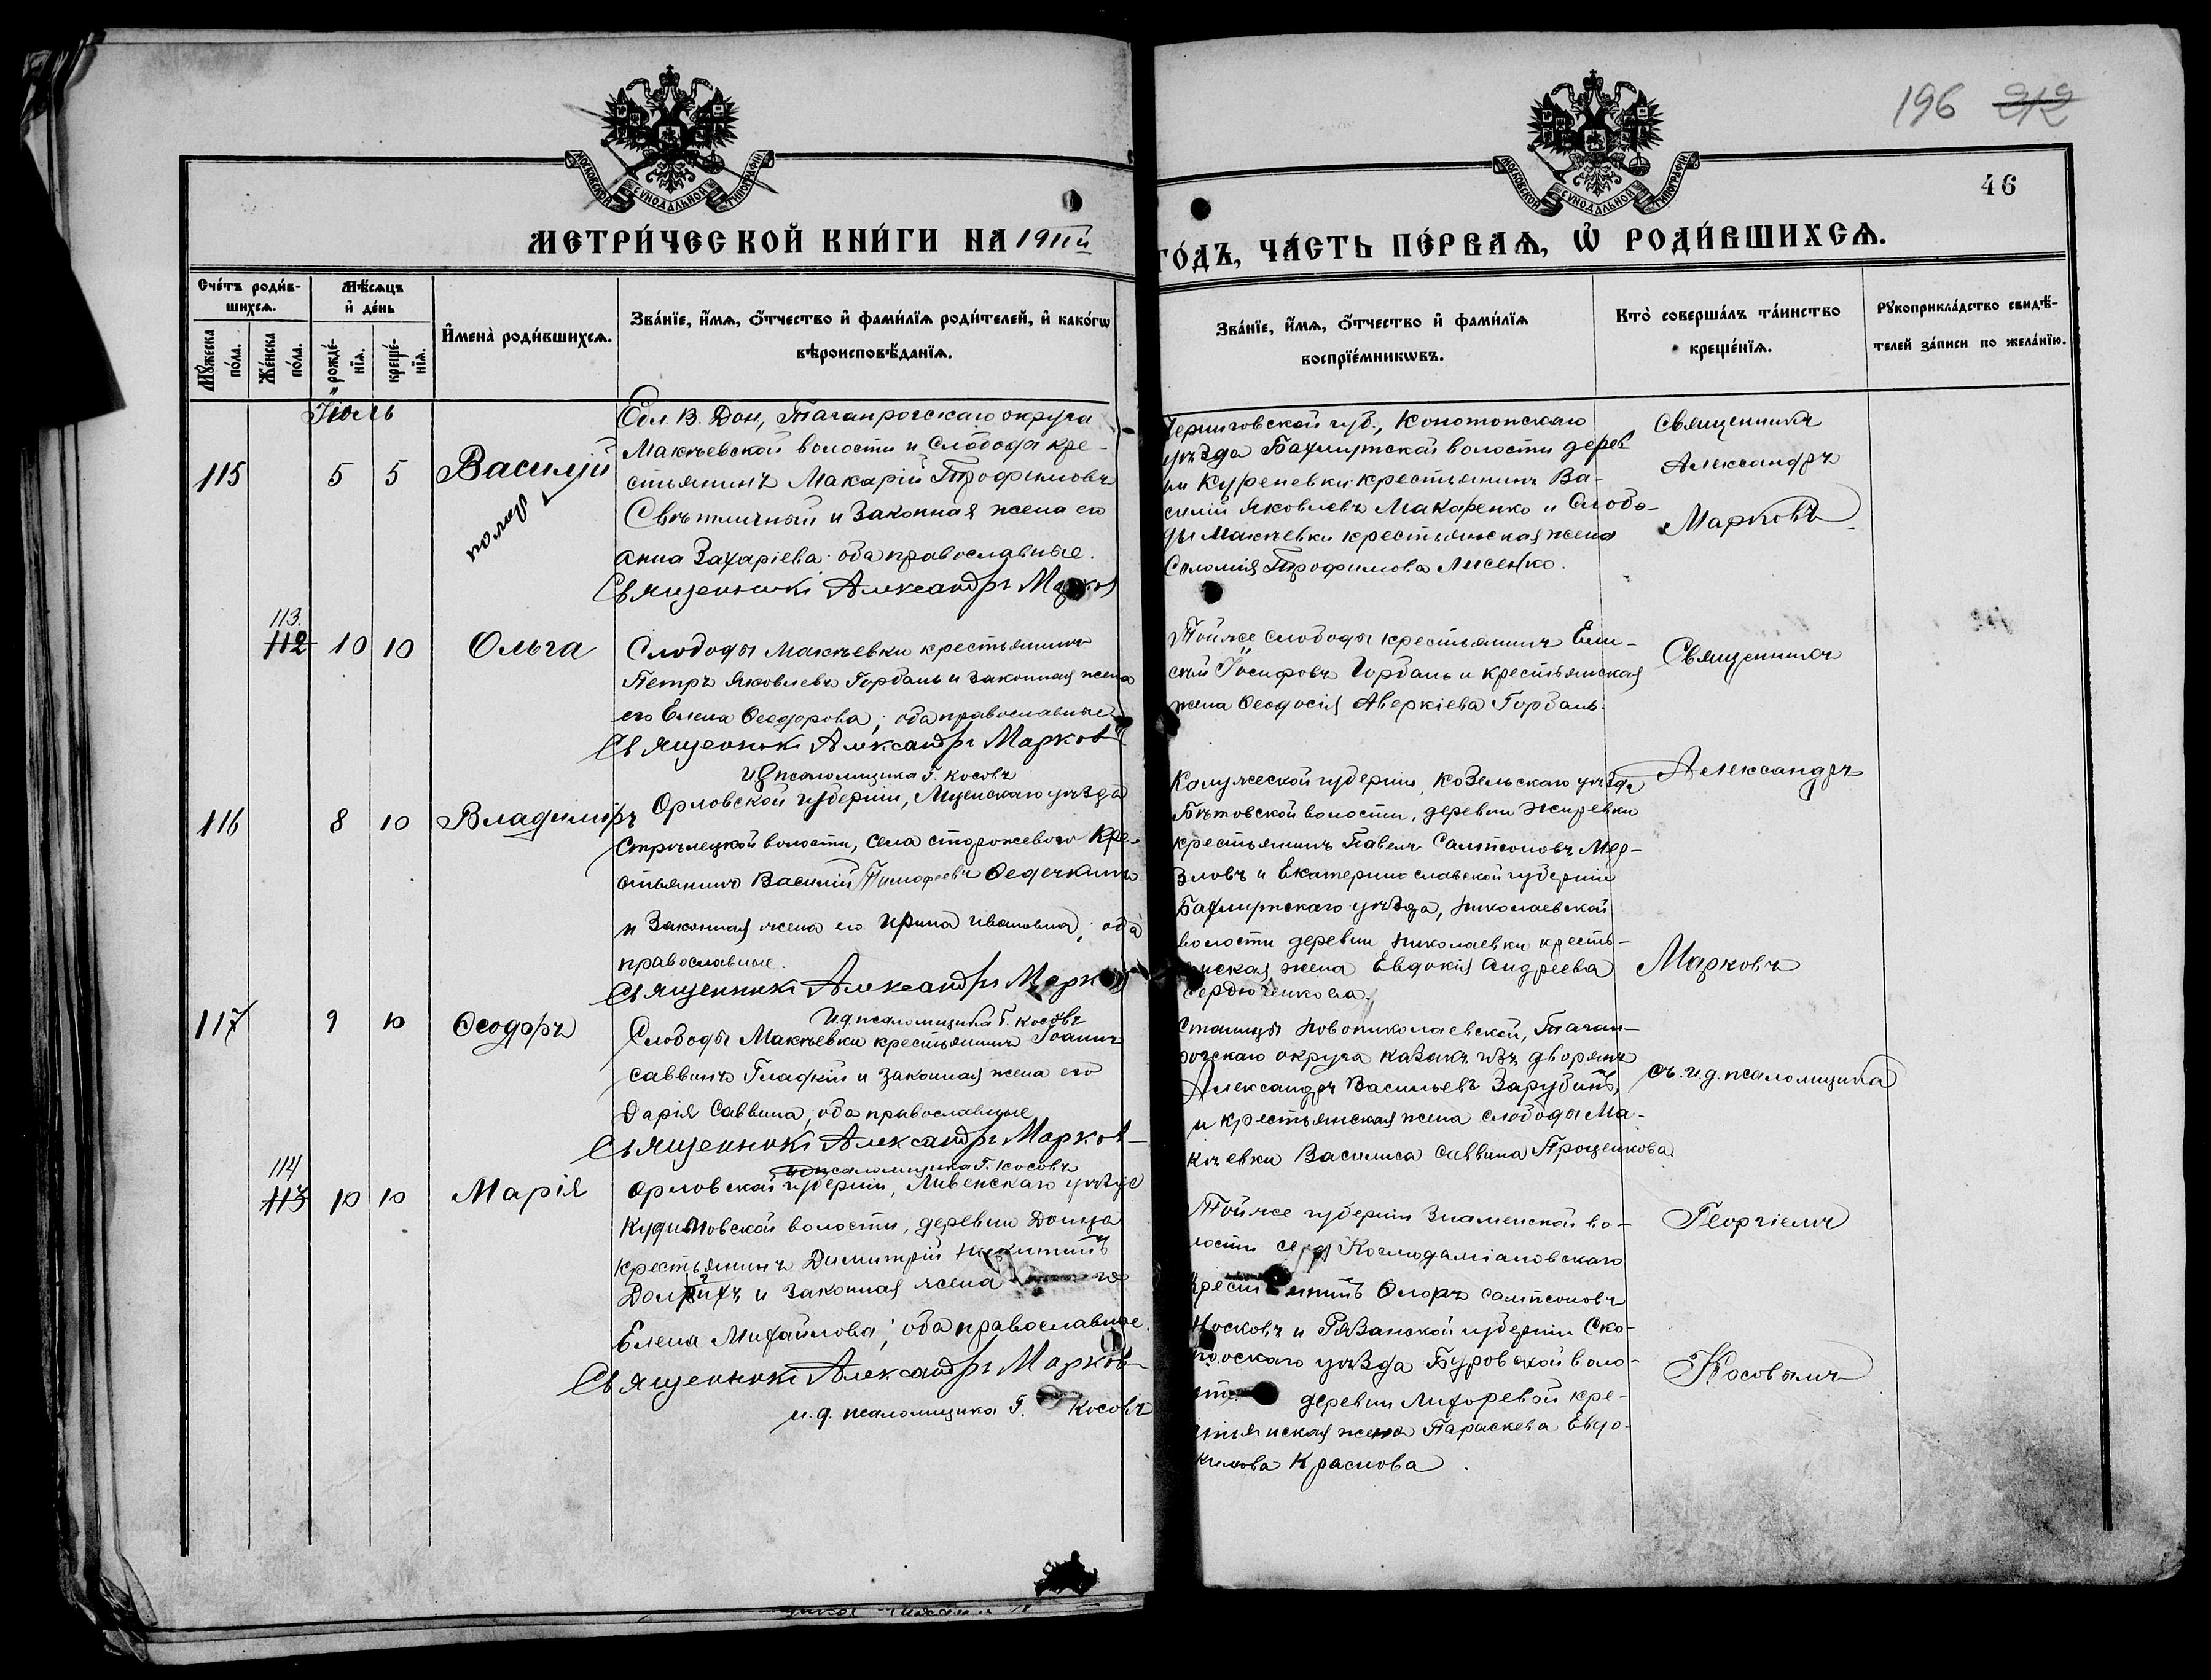 196 212
46
МОСКОВСКОЙ СУНОДАЛЬНОЙ ТИПОГРАФІИ
МОСКОВСКОЙ СУНОДАЛЬНОЙ ТИПОГРАФІИ
МЕТРИ́ЧЕСКОЙ КНИ́ГИ НА 1911й
ГО́ДЪ, ЧА́СТЬ ПЕ́РВАѦ, Ѡ҆ РОДИ́ВШИХСѦ.
Сче́тъ роди́в-
шихсѧ.
Мꙋ́жеска
по́ла.
Же́нска
по́ла.
Мѣ́сѧцъ
и҆ де́нь
рожде́-
нїѧ.
креще́-
нїѧ.
И҆мена̀ роди́вшихсѧ.
Зва́нїе, и҆́мѧ, ѻ҆́тчество и҆ фами́лїѧ роди́телей, и҆ како́гѡ
вѣроисповѣ́данїѧ.
Зва́нїе, и҆́мѧ, ѻ҆́тчество и҆ фами́лїѧ
воспрїе́мникѡвъ.
Кто̀ соверша́лъ та́инство
креще́нїѧ.
Рꙋкоприкла́дство свидѣ́-
телей за́писи по жела́нїю.
Іюль
115
5 5
Василій
Обл. В. Дон, Таганрогскаго округа
Макѣевской волости и слободы кре-
стьянинъ Макарій Трофимовъ
Свѣтличный и законная жена его
Анна Захаріева; оба православные.
Священникъ Александръ Марковъ
Черниговской губ., Конотопскаго
уѣзда Бахмутской волости дерев
ни Куреневки крестьянинъ Ва-
силій Яковлевъ Макаренко и слобо-
ды Макѣевки крестьянская жена
Соломія Трофимова Лисенко.
Священникъ
Александръ
Марковъ
113.
112
10 10
Ольга
Слободы Макѣевки крестьянинъ
Петръ Яковлевъ Горбань и законная жена
его Елена Ѳеодорова; оба православные
Священникъ Александръ Марковъ
и д псаломщика Г. Косовъ
Той же слободы крестьянинъ Ели-
сѣй Іосифовъ Горбань и крестьянская
жена Ѳеодосія Аверкіева Горбань.
Священникъ
116
8 10
Владиміръ
Орловской губерніи, Мценскаго уѣзда
Стрѣлецкой волости, села Сторожевого кре-
стьянинъ Василій Тимофеевъ Ѳедечкинъ
и законная жена его Ирина Ивановна; оба
православные.
Священникъ Александръ Марковъ
И.д. псаломщика Г. Косовъ
Калужской губерніи, Козельскаго уѣзда
волости, деревни Жиревки
крестьянинъ Павелъ Сампсоновъ Мер-
зловъ и Екатеринославской губерніи
Бахмутскаго уѣзда, Николаевской
волости деревни Николаевки кресть-
янская жена Евдокія Андреева
Сердюченкова.
Александръ
Марковъ
117
9 10
Ѳеодоръ
Слободы Макѣевки крестьянинъ Іоаннъ
Саввинъ Гладкій и законная жена его
Дарія Саввина; оба православные
Священникъ Александръ Марковъ
и д псаломщика Г. Косовъ
Станицы Новониколаевской, Таган-
рогскаго округа казакъ изъ дворянъ
Александръ Васильевъ Зарубинъ,
и крестьянская жена слободы Ма-
кѣевки Василиса Саввина Проценкова
съ и.д. псаломщика
114
113
10 10
Марія
Орловской губерніи, Ливенскаго уѣзда
волости, деревни Донца
крестьянинъ Димитрій Никитинъ
и законная жена его
Елена Михайлова; оба православные.
Священникъ Александръ Марковъ
и.д. псаломщика Г. Косовъ
Той же губерніи Знаменской во-
лости села Космодаміановскаго
крестьянинъ Флоръ Сампсоновъ
Носковъ и Рязанской губерніи Ско-
пинскаго уѣзда Буровской воло-
сти деревни Лихоревой кре-
стьянская жена Параскева Евдо-
кимова Краснова.
Георгіемъ
Косовымъ